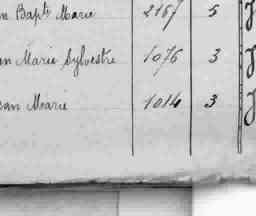 n Bapti Marie 2167 5
an Marie Sylvestre 1076 3
ean Marie 1014 3